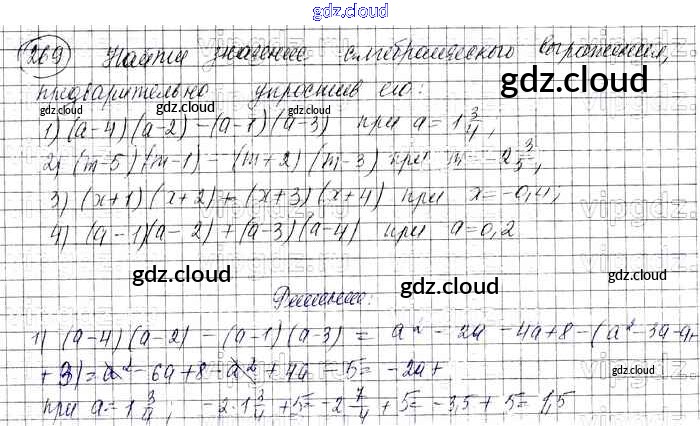 gdz.cloud
269 Найти значение алгебраического выражения,
предварительно упростив его:
1) (a-4)(a-2)-(a-1)(a-3) при a=1 3/4;
2) (m-5)(m-1)-(m+2)(m-3) при m=-2 3/5;
3) (x+1)(x+2)+(x+3)(x+4) при x=-0,4;
4) (a-1)(a-2)+(a-3)(a-4) при a=0,2
Решение:
1) (a-4)(a-2)-(a-1)(a-3)=a²-2a-4a+8-(a²-3a-a+
+3)=a²-6a+8-a²+4a-5=-2a+
при a=1 3/4; -2·1 3/4+5=-2 7/4+5=-3,5+5=1,5
gdz.cloud
gdz.cloud
gdz.cloud
gdz.cloud
gdz.cloud
gdz.cloud
gdz.cloud
gdz.cloud
gdz.cloud